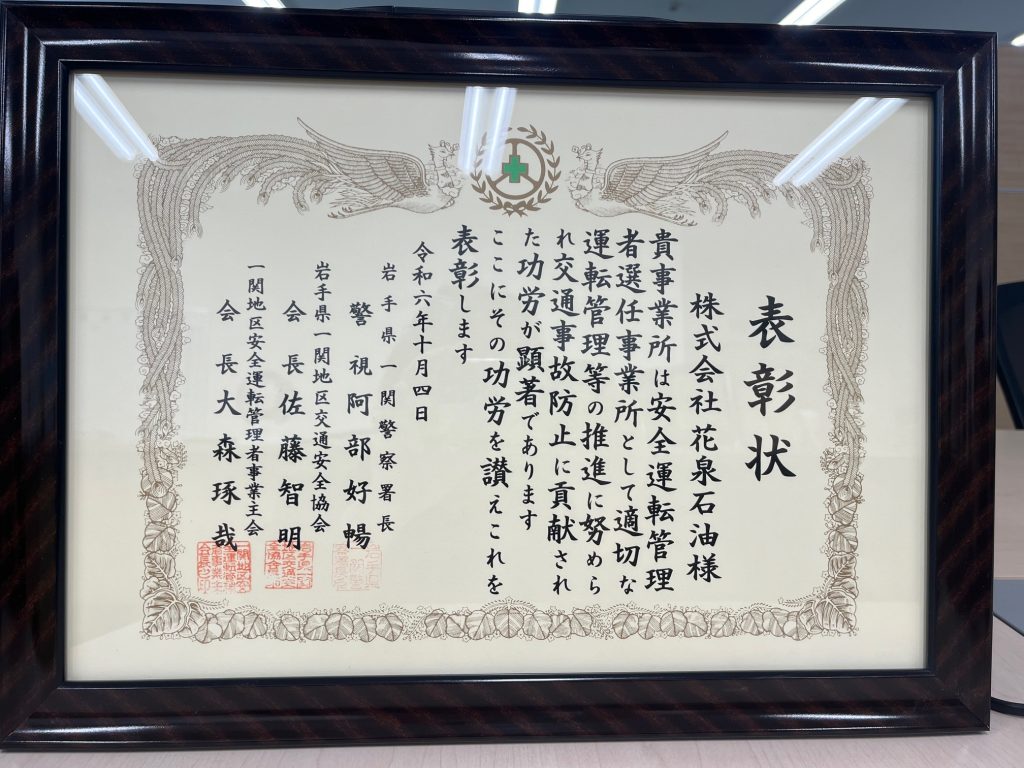 表彰状
株式会社花泉石油様
貴事業所は安全運転管理
者選任事業所として適切な
運転管理等の推進に努めら
れ交通事故防止に貢献され
た功労が顕著であります
ここにその功労を讃えこれを
表彰します
令和六年十月四日
岩手県一関警察署長
警視阿部好暢
岩手県一関地区交通安全協会
会長佐藤智明
一関地区安全運転管理者事業主会
会長大森琢哉